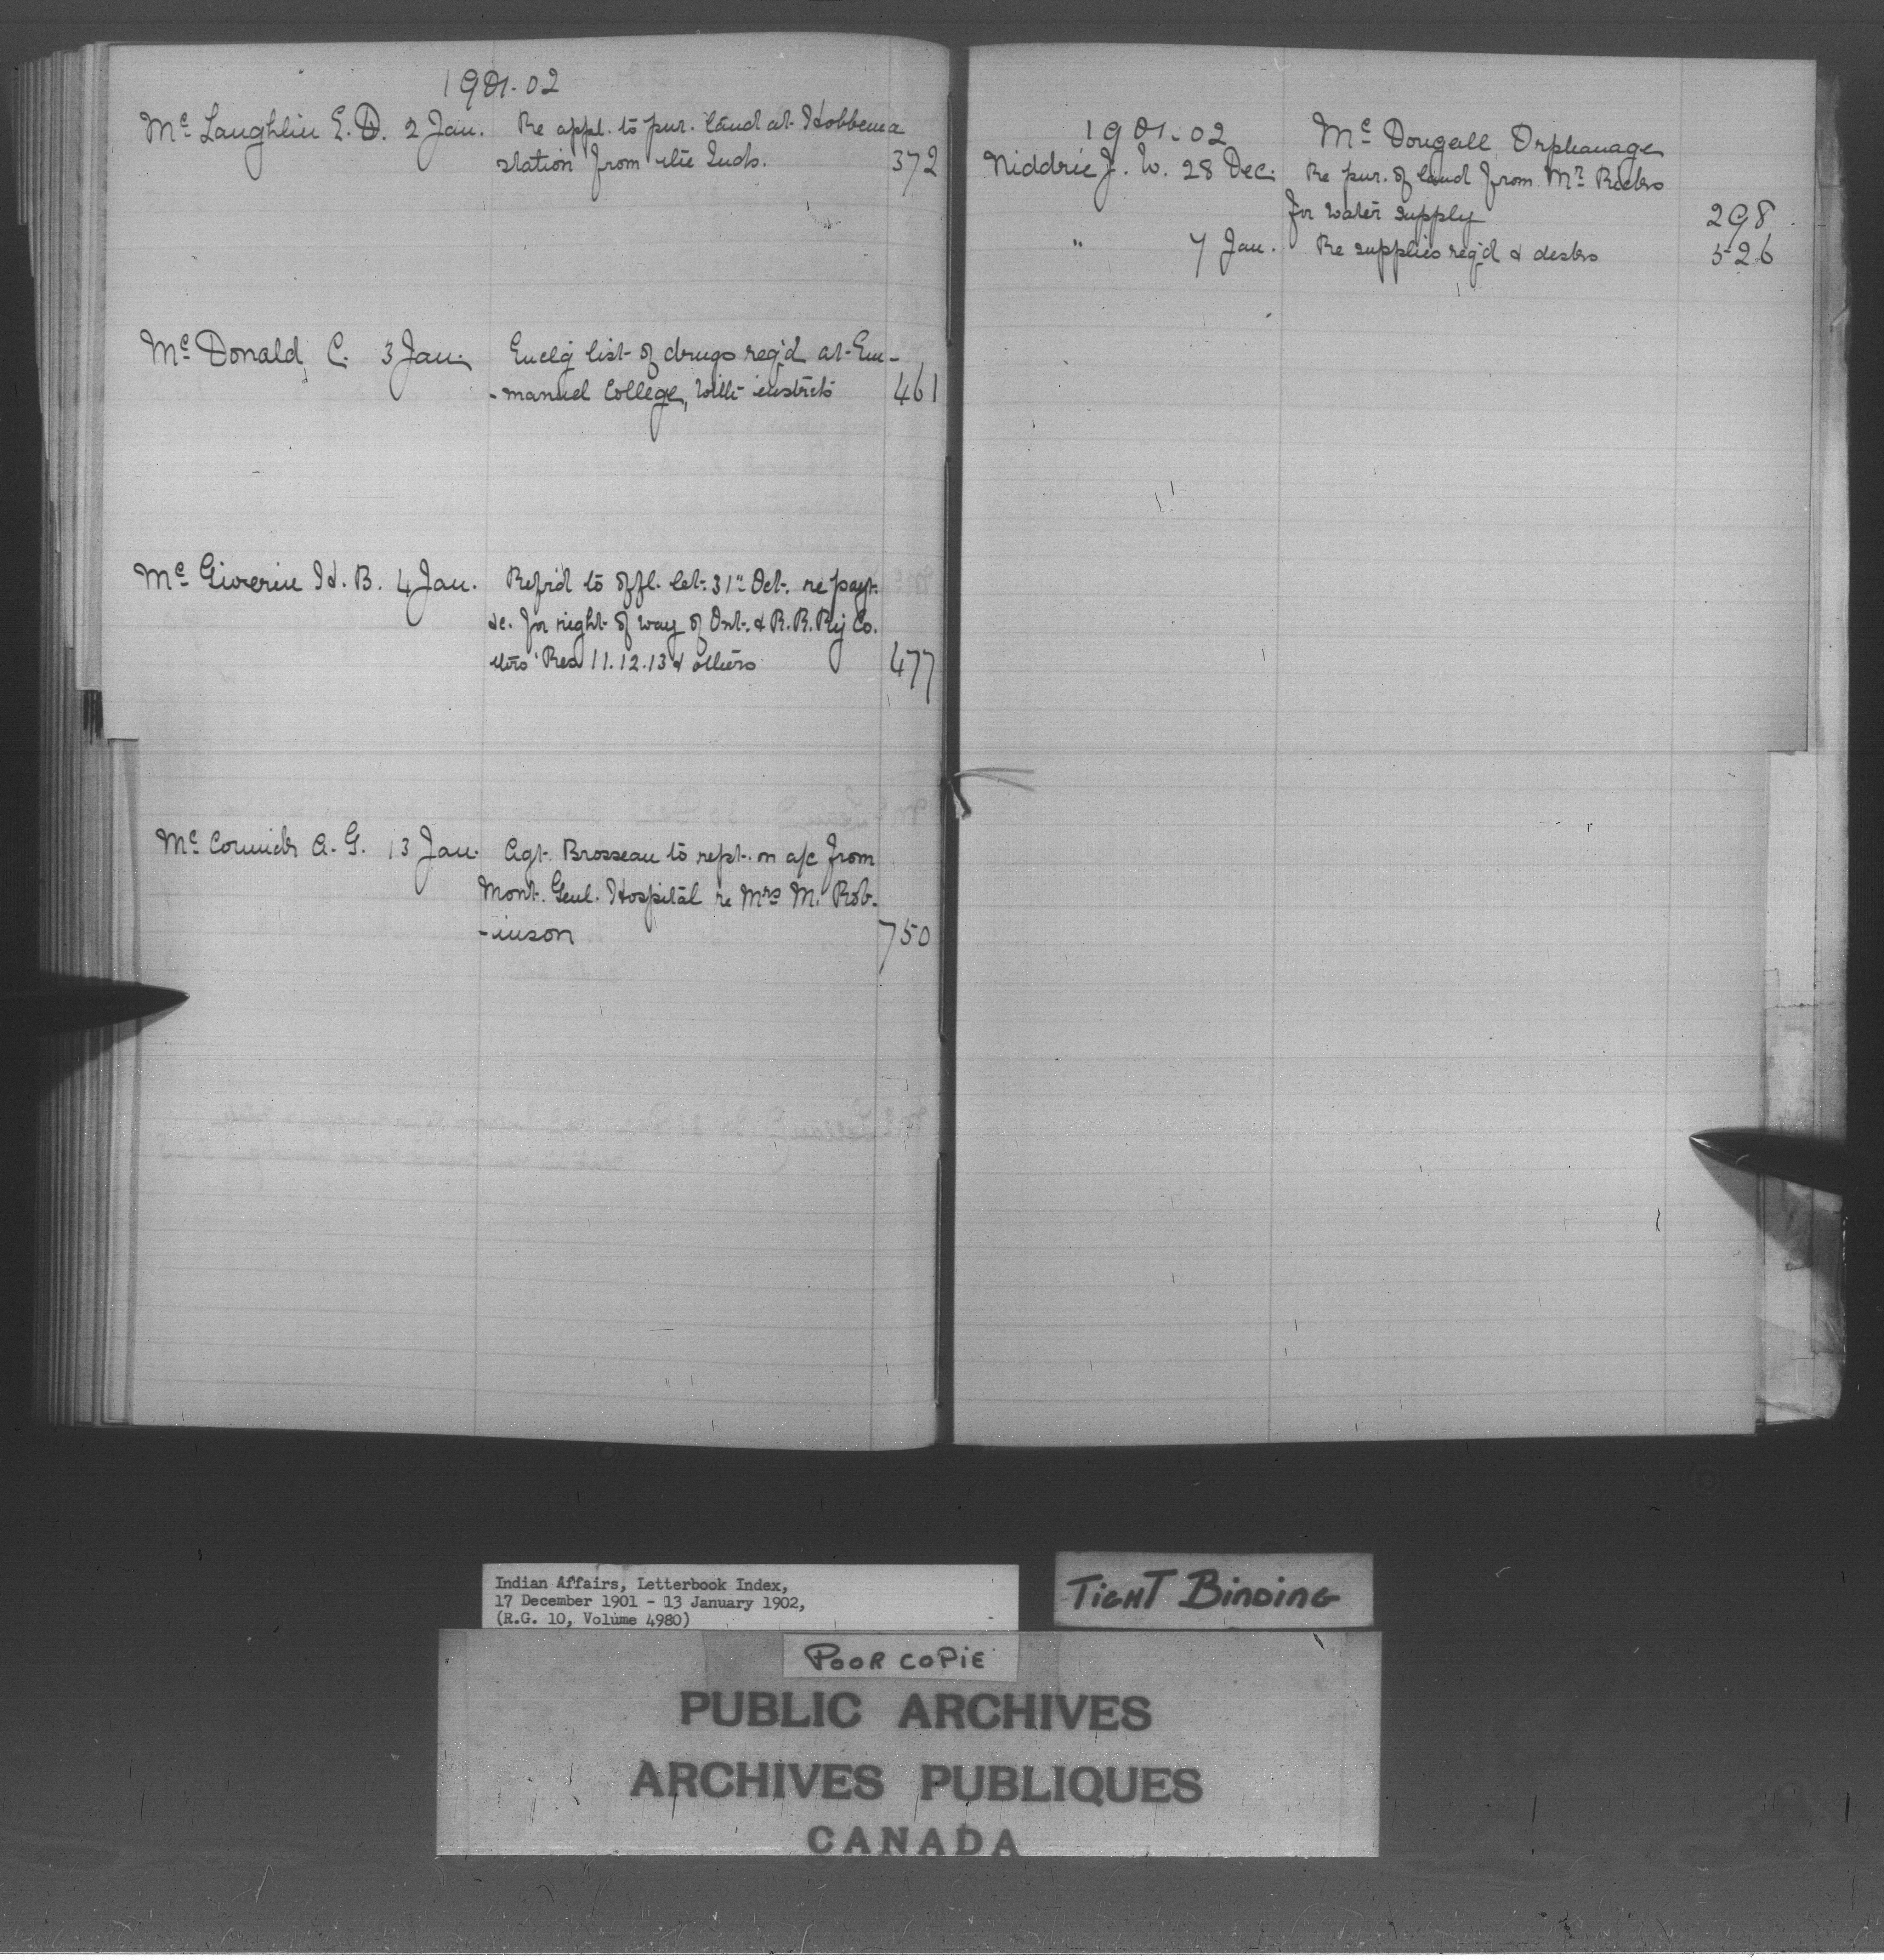 1901-02
Mc Laughlin E. D. 2 Jan. Re appl. to pur. land at Hobbema
station from the Inds. 372
Mc Donald, C. 3 Jan. Enclg list of drugs req'd at Em-
-manuel College, with instrcts 461
Mc Giverin H. B. 4 Jan. Refrd to offl. let. 31" Oct. re payt.
&c. for right of way of Ont. & R. R. Ry Co.
thro' Res 11.12.13 & others 477
Mc Cormick A. G. 13 Jan. Agt. Brosseau to rept. on a/c from
Mont. Genl. Hospital re Mrs M. Rob-
-inson 750
1901-02 Mc Dougall Orphanage
Niddrie J. W. 28 Dec. Re pur. of land from Mr Ricks
for water supply 298
" 7 Jan. Re supplies req'd & desks 526
Indian Affairs, Letterbook Index,
17 December 1901 - 13 January 1902,
(R.G. 10, Volume 4980)
TIGHT BINDING
POOR COPIE
PUBLIC ARCHIVES
ARCHIVES PUBLIQUES
CANADA